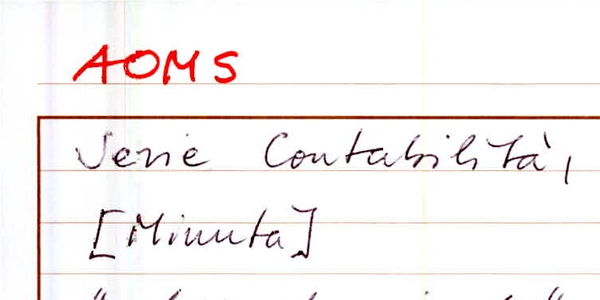 AOMS
Serie Contabilità,
[Minuta]